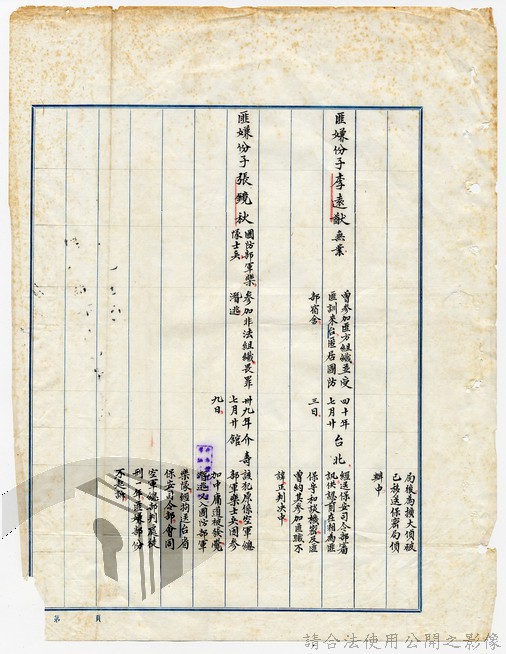 局後為擴大偵破
已移送保密局偵
辦中
匪嫌份子李遠猷無業
曾參加匪方組織並受
匪訓來台匿居國防
部宿舍
四十年
七月廿
三日
台北
經送保安司令部審
訊供認前在湘為匪
保孚和談機密及匪
曾約其參加匪職不
諱正判決中
匪嫌份子張鏡秋
國防部軍樂
隊士兵
參加非法組織畏罪
潛逃
卅九年
七月廿
九日
介壽
館
該犯原係空軍總
部軍樂士兵因參
加中庸道被發覺
潛逃國防部軍
樂隊經拘送台灣
保安司令部會同
空軍總部判處徒
刑一年匪嫌部份
不起訴
第 頁
請合法使用公開之影像